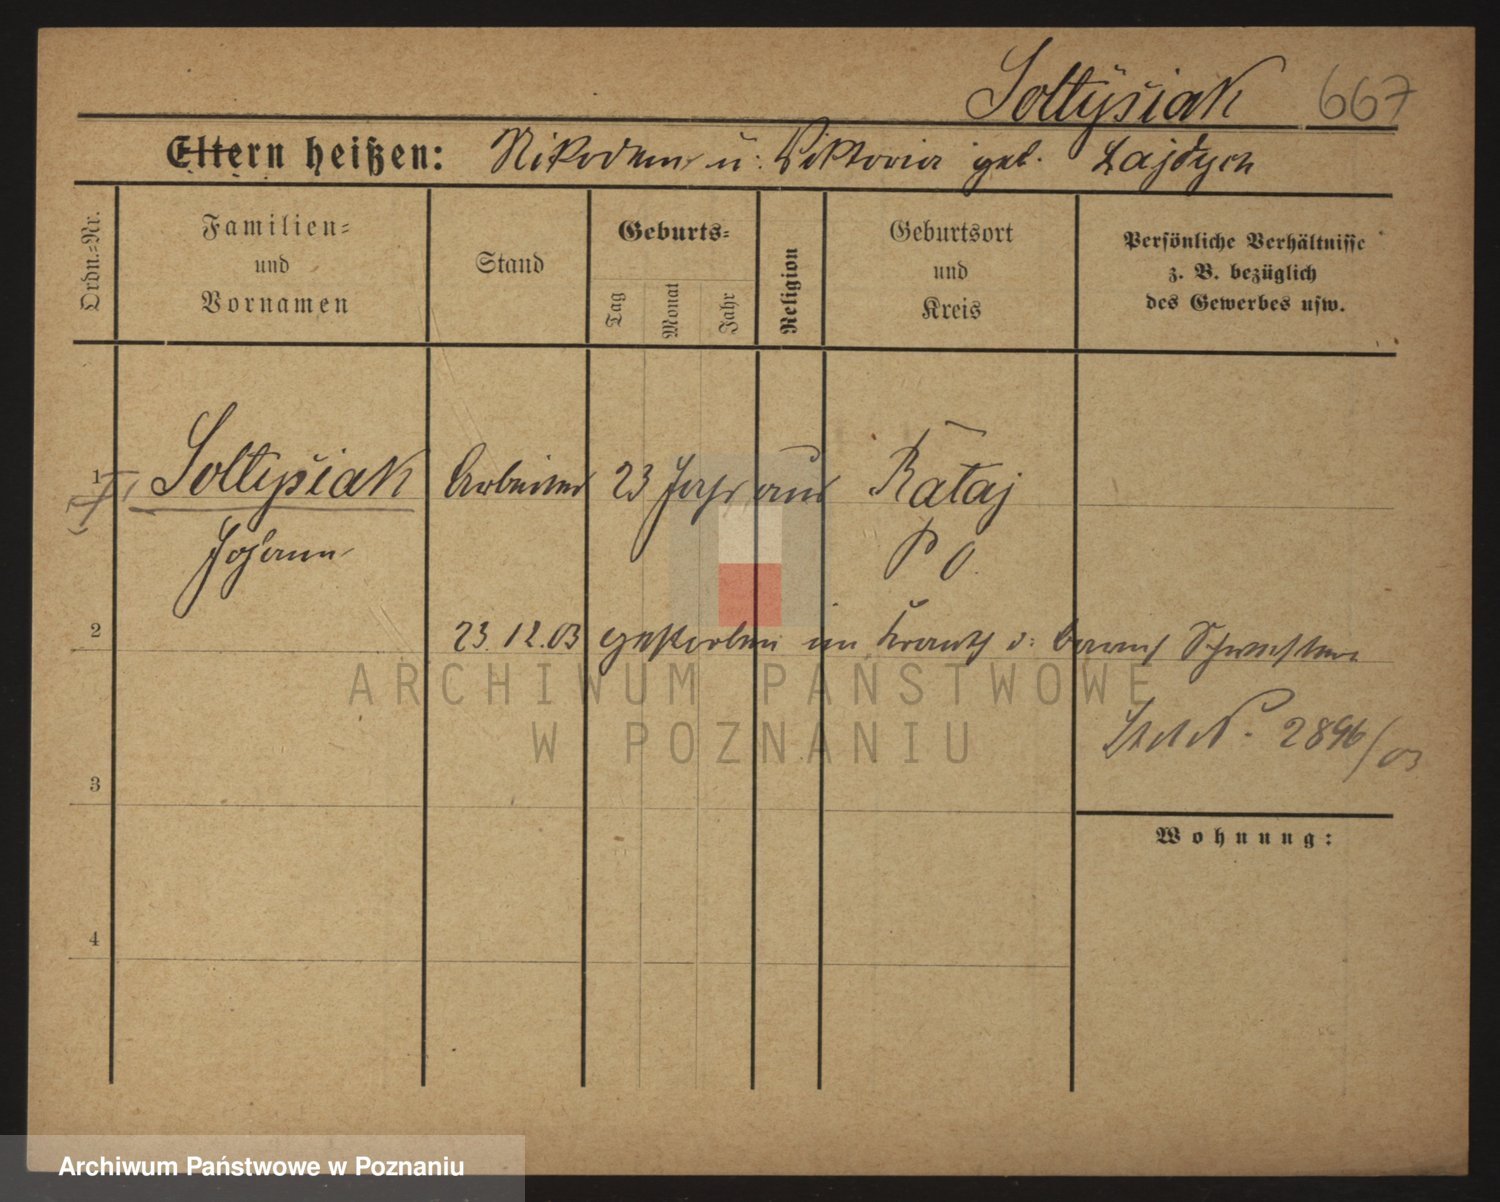 Soltysiak 667
Eltern heißen: Nikodem u. Viktoria geb.
Ordn.=Nr.
Familien=
und
Vornamen
Stand
Geburts=
Tag
Monat
Jahr
Religion
Geburtsort
und
Kreis
Persönliche Verhältnisse
z. B. bezüglich
des Gewerbes usw.
1 Soltysiak Arbeiter 23 Jahr aus Rataj
Johann P O.
2 23.12.03 gestorben im d: barmh Schwestern
2896/03
3
Wohnung:
4
ARCHIWUM PAŃSTWOWE
W POZNANIU
Archiwum Państwowe w Poznaniu